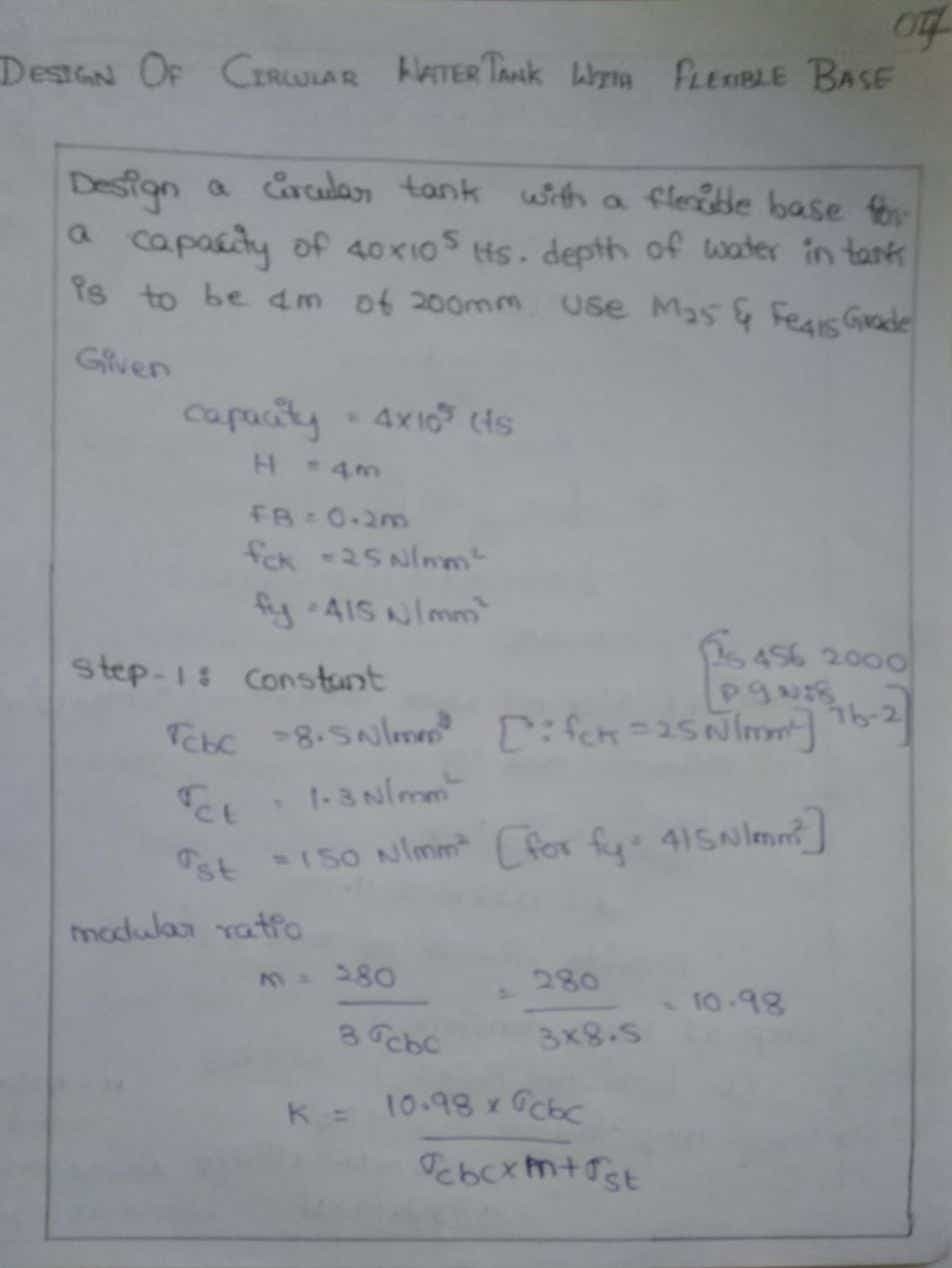 DESIGN OF CIRCULAR WATER TANK WITH FLEXIBLE BASE
Design a circular tank with a flexible base for
a capacity of 40×10⁵ lts. depth of water in tank
is to be 4m of 200mm use M25 & Fe415 Grade
Given
capacity = 4×10⁵ lts
H = 4m
FB = 0.2m
fck = 25 N/mm²
fy = 415 N/mm²
Step-1: constant [Is 456 2000
σcbc = 8.5 N/mm² [∵ fck = 25 N/mm²] Tb-2]
σct = 1.3 N/mm²
σst = 150 N/mm² [for fy = 415 N/mm²]
modular ratio
m = 280 / 3σcbc = 280 / 3×8.5 = 10.98
K = 10.98 × σcbc / σcbc × m + σst